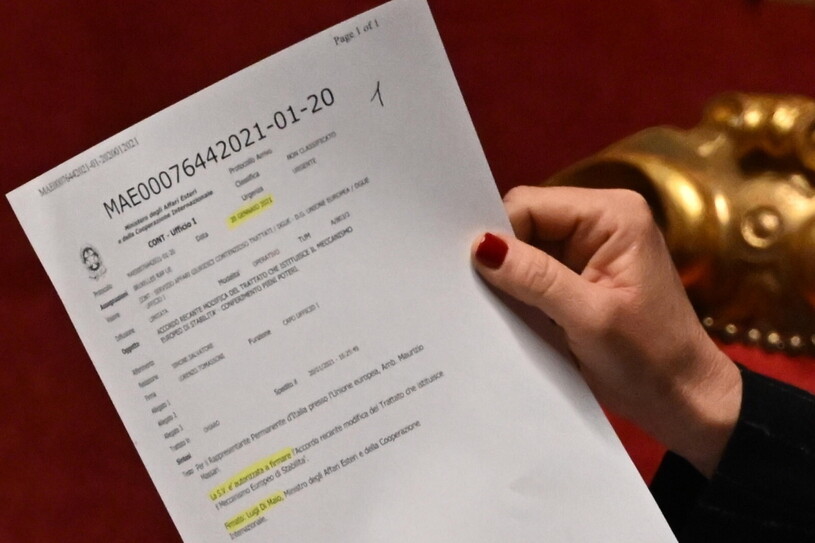 Page 1 of 1
1
MAE00076442021-01-20
Ministero degli Affari Esteri
e della Cooperazione Internazionale
Protocollo Arrivo
CONT - Ufficio I
Classifica
NON CLASSIFICATO
Urgenza
URGENTE
Data
20 GENNAIO 2021
Protocollo
Assegnazioni
Diffusione
LIMITATA
Modalità
OPERATIVO
Oggetto
ACCORDO RECANTE MODIFICA DEL TRATTATO CHE ISTITUISCE IL MECCANISMO
EUROPEO DI STABILITA' - CONFERIMENTO PIENI POTERI.
Riferimento
Redazione
SIMONE SALVATORE
Firma
Funzione
CAPO UFFICIO I
Allegato 1
Allegato 2
Allegato 3
Spedito il
Sintesi
Testo
Per il Rappresentante Permanente d'Italia presso l'Unione europea, Amb. Maurizio
Massari.
La S.V. e' autorizzata a firmare l'Accordo recante modifica del Trattato che istituisce
il Meccanismo Europeo di Stabilita'.
Firmato: Luigi Di Maio, Ministro degli Affari Esteri e della Cooperazione
Internazionale.